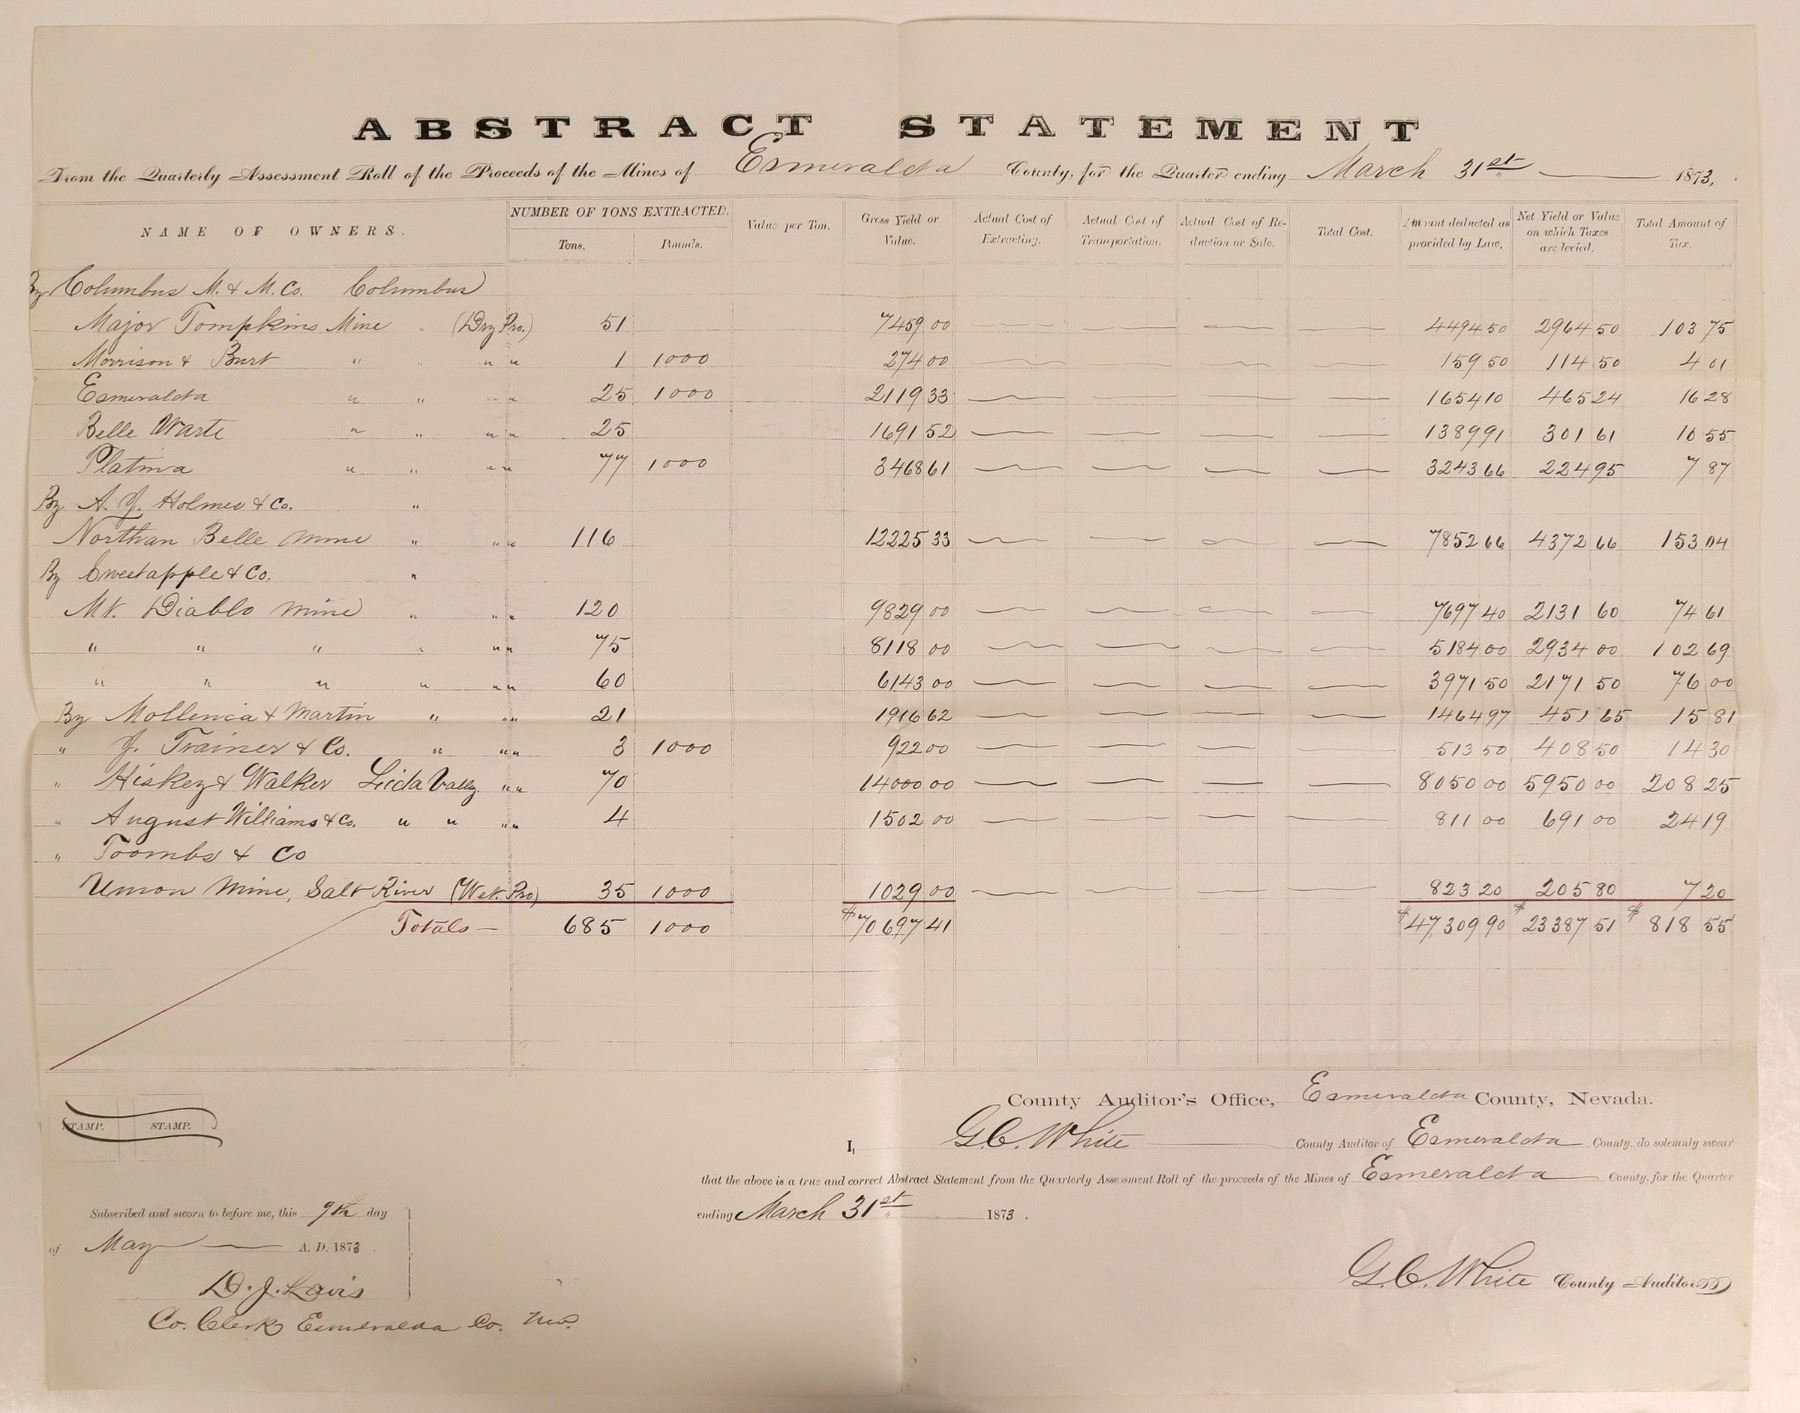 ABSTRACT STATEMENT
From the Quarterly Assessment Roll of the Proceeds of the Mines of Esmeralda County, for the Quarter ending March 31st 1873,
NAME OF OWNERS. NUMBER OF TONS EXTRACTED. Tons. Pounds. Value per Ton. Gross Yield or Value. Actual Cost of Extracting. Actual Cost of Transportation. Actual Cost of Reduction or Sale. Total Cost. Amount deducted as provided by Law. Net Yield or Value on which Taxes are levied. Total Amount of Tax.
By Columbus M. & M. Co. Columbus
Major Tompkins Mine " (Dry Pro.) 51 7459 00 — — — — 4494 50 2964 50 103 75
Morrison & Burt " " " " 1 1000 274 00 — — — 159 50 114 50 4 01
Esmeralda " " " " 25 1000 2119 33 — — — — 1654 10 465 24 16 28
Belle Warte " " " " 25 1691 52 — — — — 1389 91 301 61 10 55
Platina " " " " 77 1000 3468 61 — — — — 3243 66 224 95 7 87
By A. J. Holmes & Co. "
Northan Belle Mine " " " 116 12225 33 — — — — 7852 66 4372 66 153 04
By Sweetapple & Co. "
Mt. Diablo Mine " " " 120 9829 00 — — — — 7697 40 2131 60 74 61
" " " " " " 75 8118 00 — — — — 5184 00 2934 00 102 69
" " " " " " 60 6143 00 — — — — 3971 50 2171 50 76 00
By Mollenca & Martin " " " 21 1916 62 — — — — 1464 97 451 65 15 81
" J. Trainer & Co. " " " 3 1000 922 00 — — — — 513 50 408 50 14 30
" Hiskey & Walker Lida Valley " " 70 14000 00 — — — — 8050 00 5950 00 208 25
" August Williams & Co. " " " " 4 1502 00 — — — — 811 00 691 00 24 19
" Toombs & Co
Union Mine, Salt River (Wet. Pro) 35 1000 1029 00 — — — — 823 20 205 80 7 20
Totals — 685 1000 $70697 41 $47,309 90 $23387 51 $818 55
County Auditor's Office, Esmeralda County, Nevada.
STAMP. STAMP.
I, G. C. White County Auditor of Esmeralda County, do solemnly swear
that the above is a true and correct Abstract Statement from the Quarterly Assessment Roll of the proceeds of the Mines of Esmeralda County, for the Quarter
ending March 31st 1873.
Subscribed and sworn to before me, this 9th day
of May A. D. 1873
G. C. White County Auditor
D. J. Lewis
Co. Clerk Esmeralda Co. Nev.